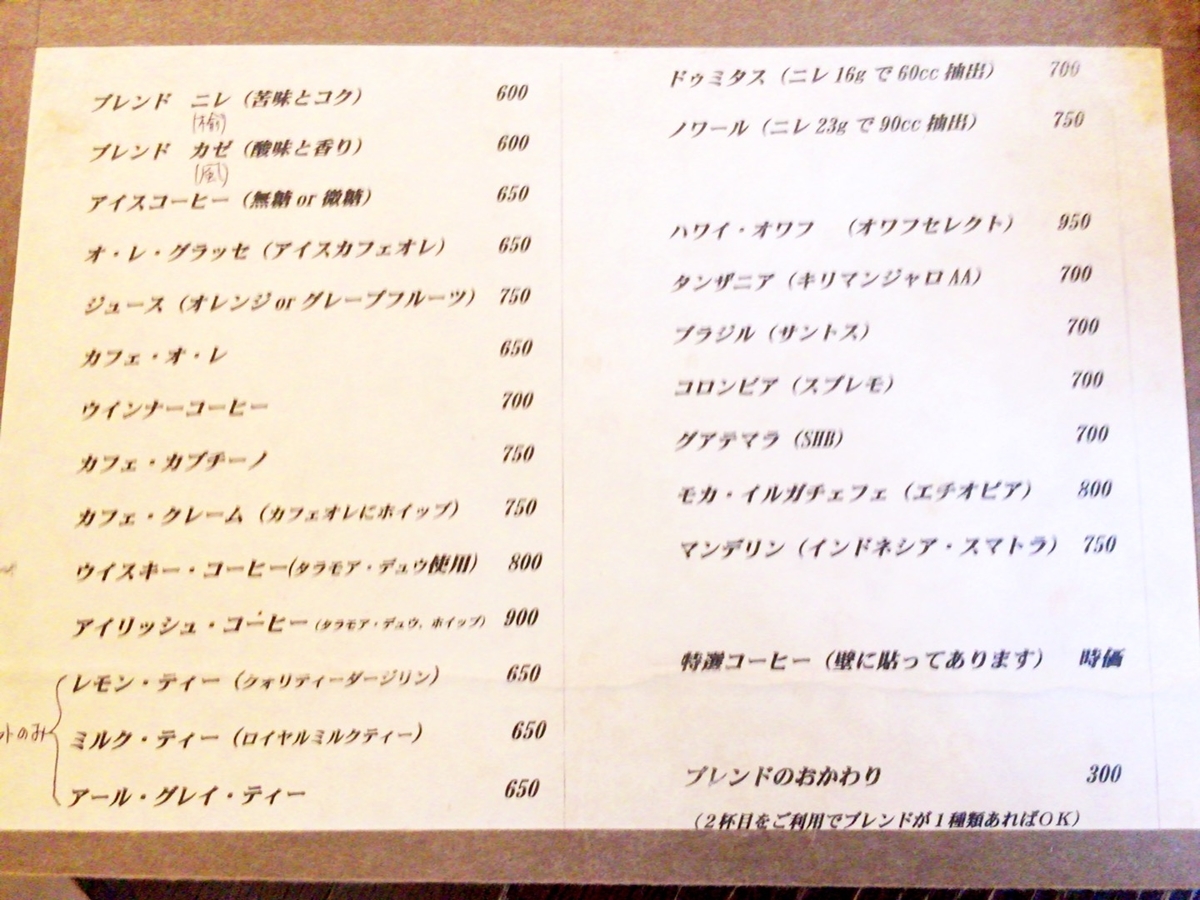 ブレンド ニレ（苦味とコク） 600
(楡)
ブレンド カゼ（酸味と香り） 600
(風)
アイスコーヒー（無糖 or 微糖） 650
オ・レ・グラッセ（アイスカフェオレ） 650
ジュース（オレンジ or グレープフルーツ） 750
カフェ・オ・レ 650
ウインナーコーヒー 700
カフェ・カプチーノ 750
カフェ・クレーム（カフェオレにホイップ） 750
ウイスキー・コーヒー(タラモア・デュウ使用) 800
アイリッシュ・コーヒー（タラモア・デュウ、ホイップ） 900
レモン・ティー（クォリティーダージリン） 650
ットのみ
ミルク・ティー（ロイヤルミルクティー） 650
アール・グレイ・ティー 650
ドゥミタス（ニレ 16g で 60cc 抽出） 700
ノワール（ニレ 23g で 90cc 抽出） 750
ハワイ・オワフ （オワフセレクト） 950
タンザニア（キリマンジャロ AA） 700
ブラジル（サントス） 700
コロンビア（スプレモ） 700
グアテマラ（SHB） 700
モカ・イルガチェフェ（エチオピア） 800
マンデリン（インドネシア・スマトラ） 750
特選コーヒー（壁に貼ってあります） 時価
ブレンドのおかわり 300
（２杯目をご利用でブレンドが１種類あればＯＫ）